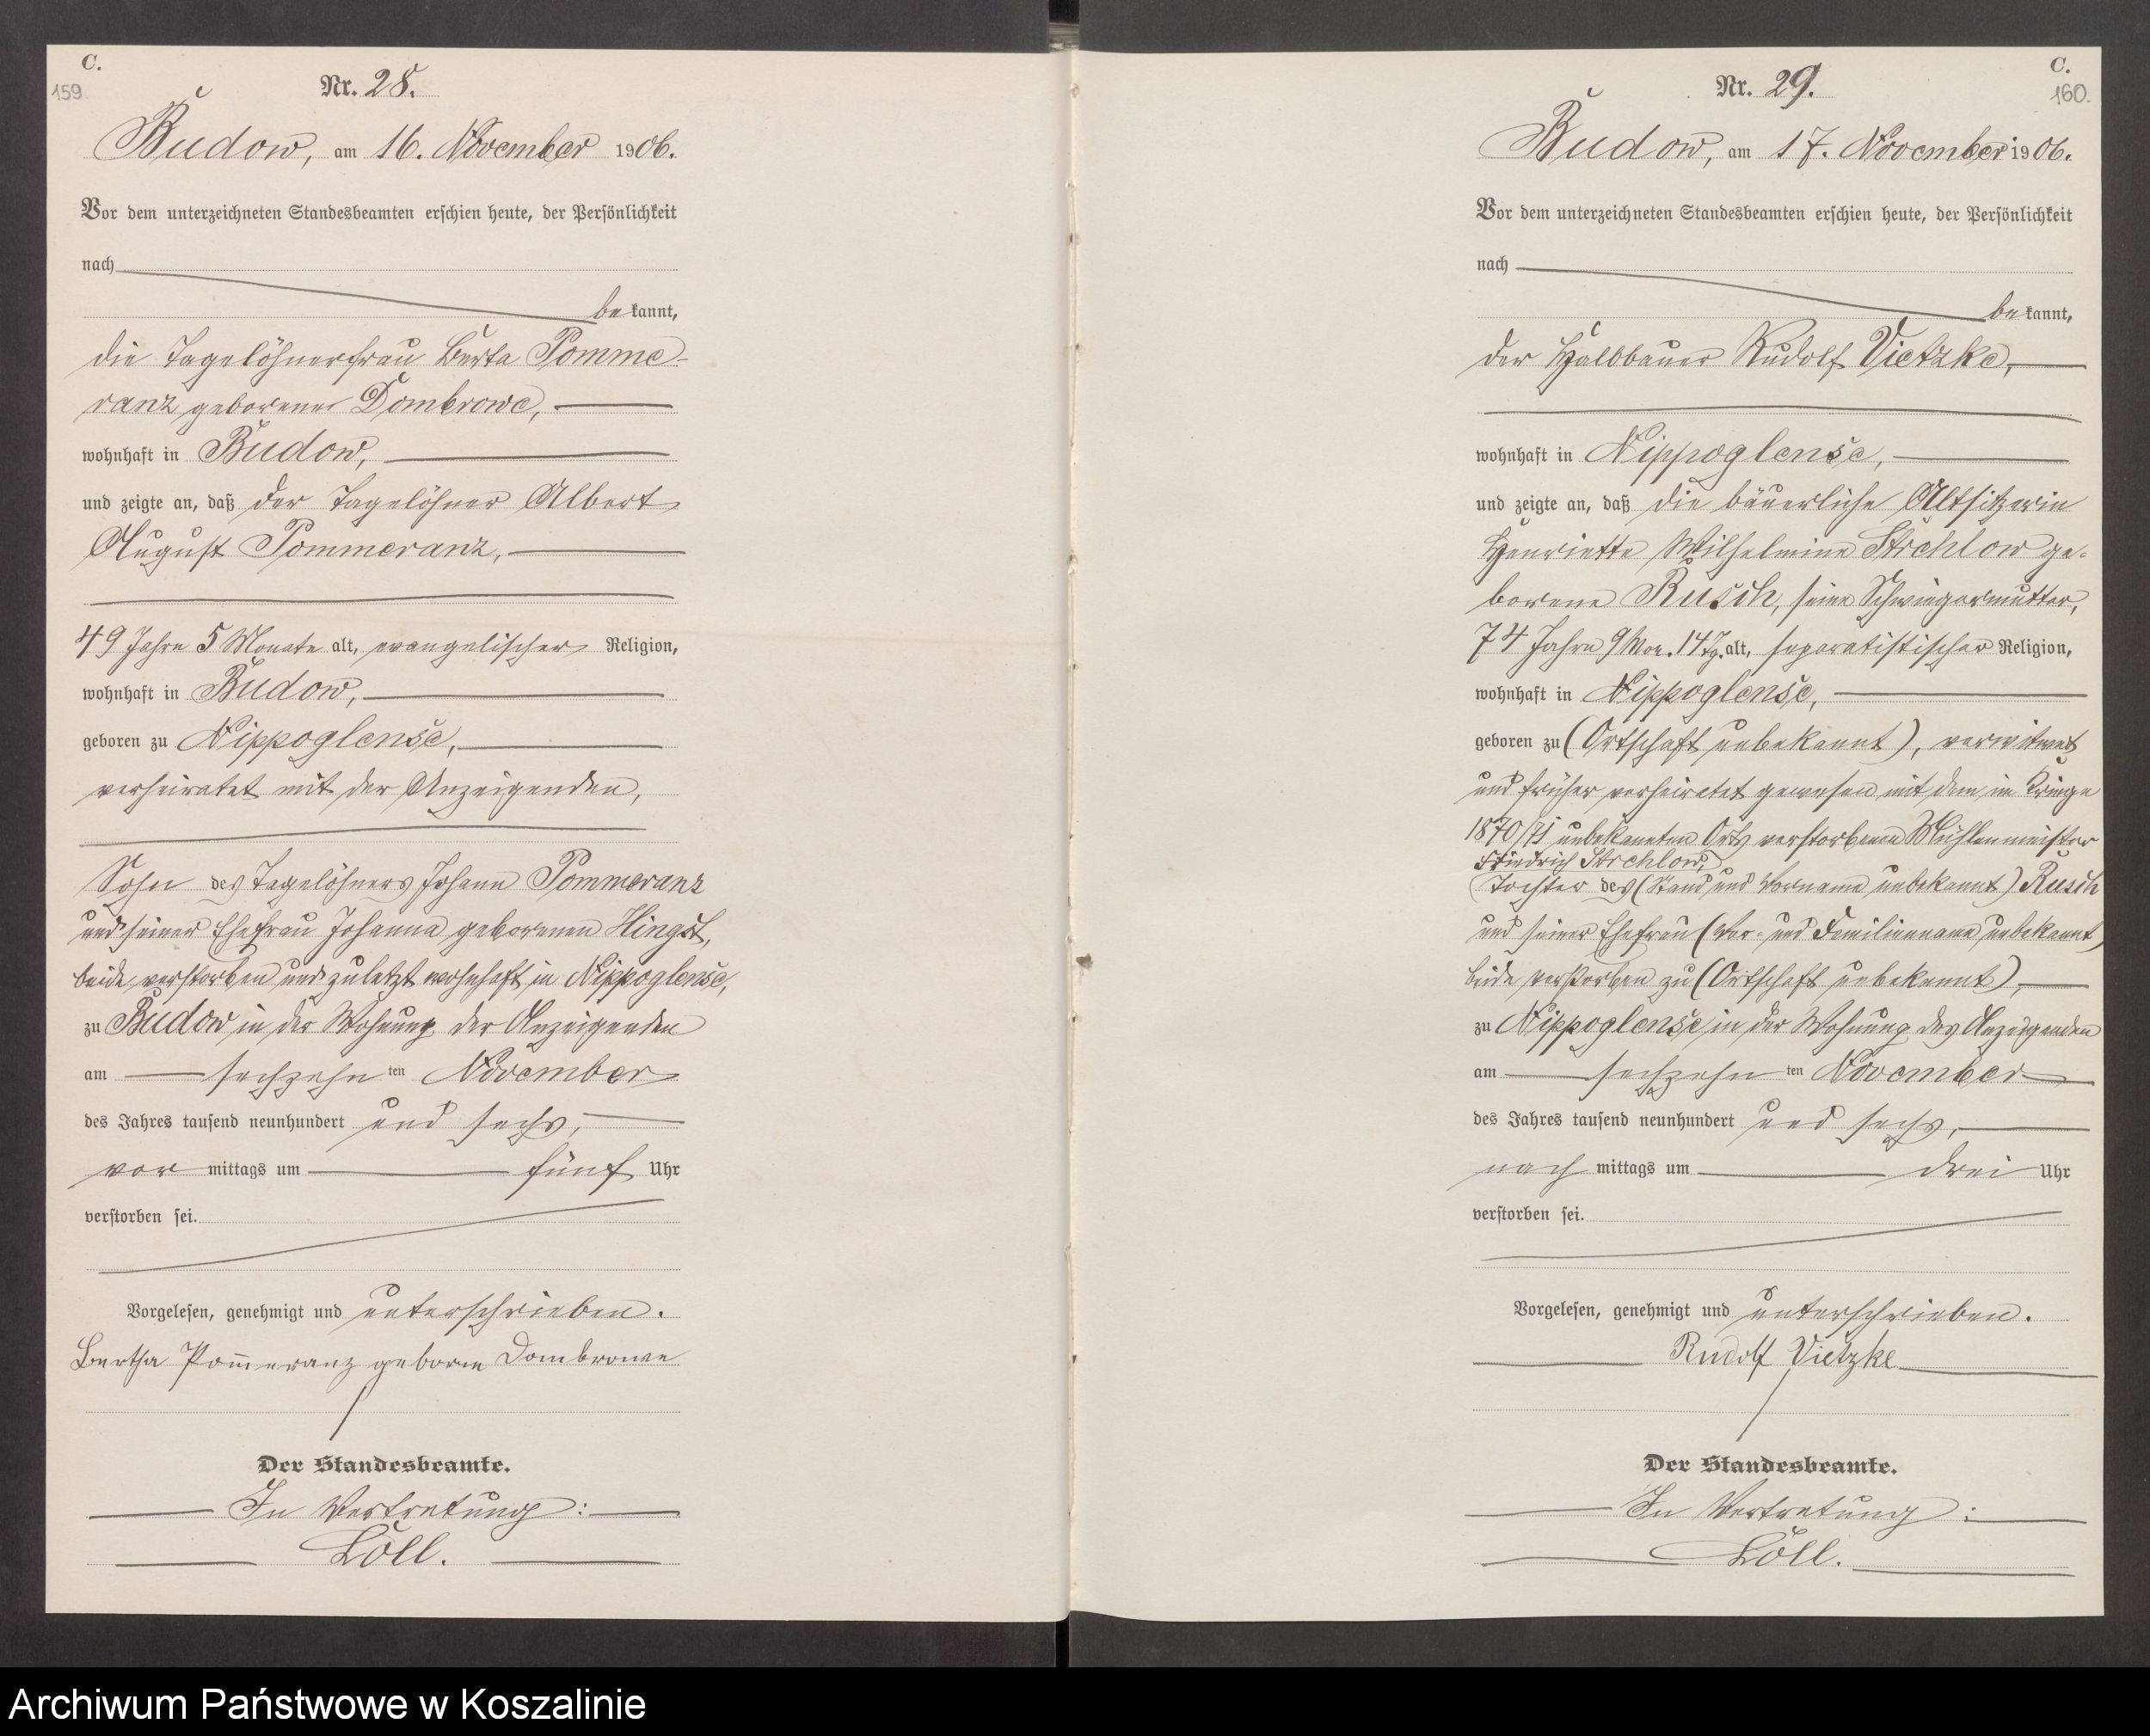 C.
159
Nr. 28.
Budow, am 16. November 1906.
Vor dem unterzeichneten Standesbeamten erschien heute, der Persönlichkeit
nach
bekannt,
die Tagelöhnerfrau Berta Pomme-
ranz geborene Dombrowe,
wohnhaft in Budow,
und zeigte an, daß der Tagelöhner Albert
August Pommeranz,
49 Jahre 5 Monate alt, evangelischer Religion,
wohnhaft in Budow,
geboren zu Nippoglense,
verheiratet mit der Anzeigenden,
Sohn des Tagelöhners Johann Pommeranz
und seiner Ehefrau Johanna geborenen Hingst,
beide verstorben und zuletzt wohnhaft in Nippoglense,
zu Budow in der Wohnung der Anzeigenden
am sechzehnten November
des Jahres tausend neunhundert und sechs,
vormittags um fünf Uhr
verstorben sei.
Vorgelesen, genehmigt und unterschrieben.
Bertha Pom̄eranz geborne Dombrowe
Der Standesbeamte.
In Vertretung:
Löll.
C.
160.
Nr. 29.
Budow, am 17. November 1906.
Vor dem unterzeichneten Standesbeamten erschien heute, der Persönlichkeit
nach
bekannt,
der Halbbauer Rudolf Vietzke,
wohnhaft in Nippoglense,
und zeigte an, daß die bäuerliche Altsitzerin
Henriette Wilhelmine Strehlow ge-
borene Rusch, seine Schwiegermutter,
74 Jahre 9 Mon. 14 Tg. alt, separatistischer Religion,
wohnhaft in Nippoglense,
geboren zu (Ortschaft unbekannt), verwitwet
und früher verheiratet gewesen mit dem im Kriege
1870/71 unbekannten Orts verstorbenen Mühlenmeister
Friedrich Strehlow,
Tochter des (Stand und Vorname unbekannt) Rusch
und seiner Ehefrau (Vor- und Familienname unbekannt)
beide verstorben zu (Ortschaft unbekannt),
zu Nippoglense in der Wohnung des Anzeigenden
am sechzehnten November
des Jahres tausend neunhundert und sechs,
nachmittags um drei Uhr
verstorben sei.
Vorgelesen, genehmigt und unterschrieben.
Rudolf Vietzke
Der Standesbeamte.
In Vertretung:
Löll.
Archiwum Państwowe w Koszalinie